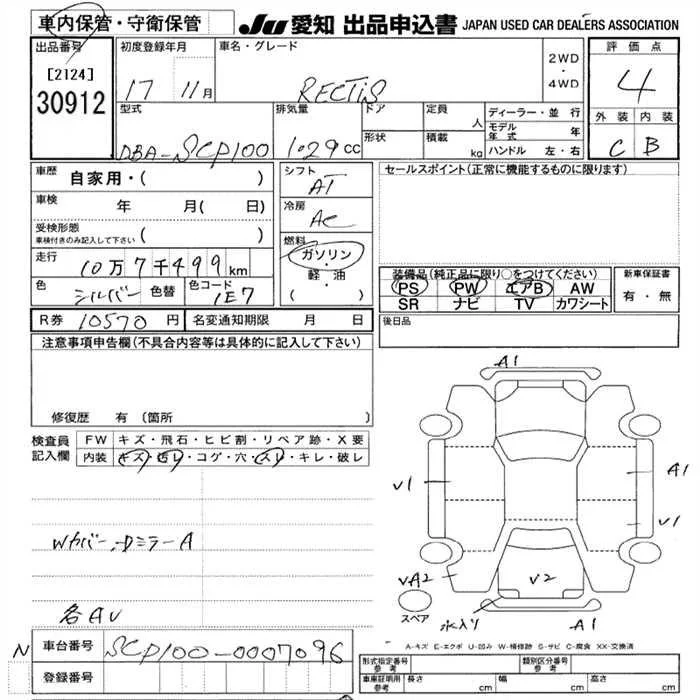 車内保管・守衛保管
JU 愛知 出品申込書 JAPAN USED CAR DEALERS ASSOCIATION
出品番号
[2124]
30912
初度登録年月
17 11月
車名・グレード
RECTiS
2WD
・
4WD
評価点
4
外装 内装
C B
型式
DBA-SCP100
排気量
1029cc
ドア
形状
定員
人
積載
kg
ディーラー・並行
モデル年式 年
ハンドル 左・右
車歴
自家用・( )
車検
年 月( 日)
受検形態
車検付きのみ記入して下さい ( )
走行
10万7千499km
色
シルバー
色替
色コード
1E7
シフト
AT
冷房
AC
燃料
ガソリン
・
軽・油
( )
セールスポイント(正常に機能するものに限ります)
装備品(純正品に限り○をつけてください)
PS PW エアB AW
SR ナビ TV カワシート
新車保証書
有・無
R券 10570円
名変通知期限 月 日
後日品
注意事項申告欄(不具合内容等は具体的に記入して下さい)
修復歴 有 (箇所 )
検査員記入欄
FW キズ・飛石・ヒビ割・リペア跡・X要
内装 キズ・汚レ・コゲ・穴・スレ・キレ・破レ
Wカバー、Dミラー A
各AU
A1
V1
A1
V1
VA2
V2
水入り
A1
スペア
A-キズ E-エクボ U-凹み W-補修跡 S-サビ C-腐食 XX-交換済
N
車台番号
SCP100-0007096
登録番号
形式指定番号
参考
類別区分番号
参考
車庫証明用
参考
長さ cm
幅 cm
高さ cm